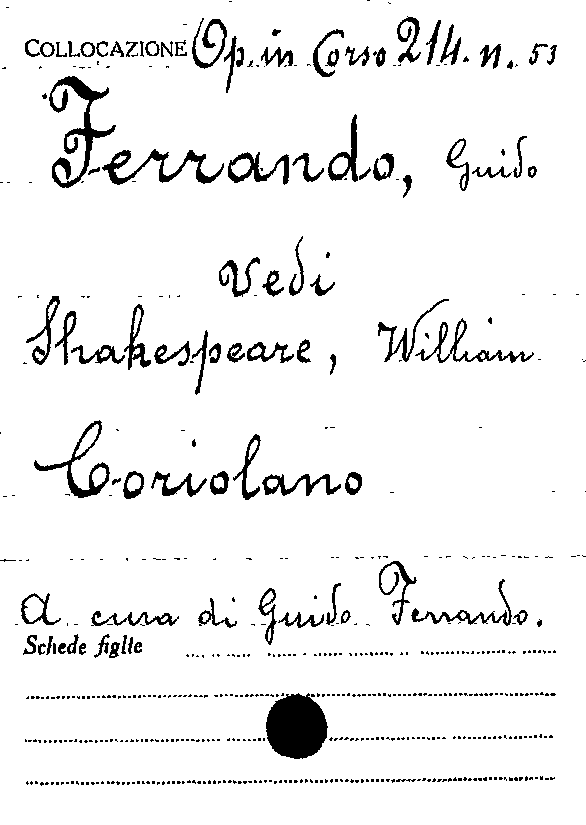 COLLOCAZIONE Op. in Corso 214. n. 53
Ferrando, Guido
Vedi
Shakespeare, William
Coriolano
A cura di Guido Ferrando.
Schede figlie